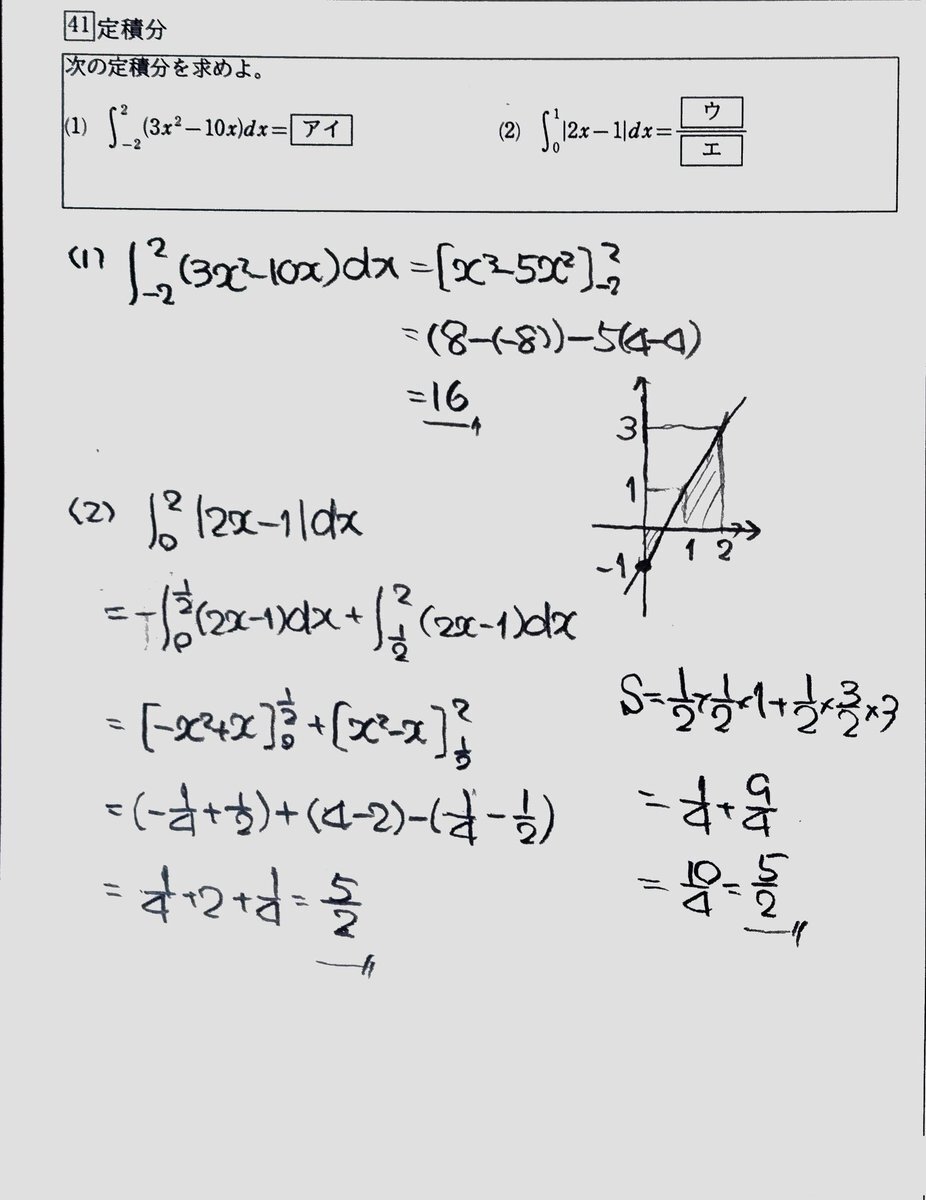 41 定積分
次の定積分を求めよ。
(1) ∫_{-2}^{2} (3x²-10x)dx= アイ
(2) ∫_{0}^{1} |2x-1|dx= ウ/エ
(1) ∫_{-2}^{2} (3x²-10x)dx=[x³-5x²]_{-2}^{2}
=(8-(-8))-5(4-4)
=16
3
1
-1
1 2
(2) ∫_{0}^{2} |2x-1|dx
=-∫_{0}^{1/2} (2x-1)dx+∫_{1/2}^{2} (2x-1)dx
=[-x²+x]_{0}^{1/2}+[x²-x]_{1/2}^{2}
=(-1/4+1/2)+(4-2)-(1/4-1/2)
=1/4+2+1/4=5/2
S=1/2×1/2×1+1/2×3/2×3
=1/4+9/4
=10/4=5/2